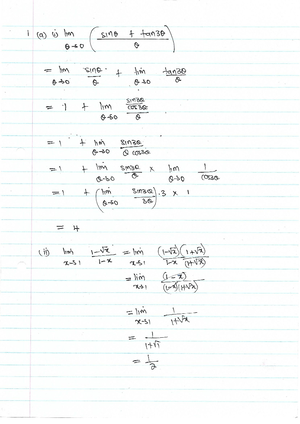 1 (a) (i) lim θ→0 ( (sinθ + tan3θ) / θ )
= lim θ→0 sinθ/θ + lim θ→0 tan3θ/θ
= 1 + lim θ→0 (sin3θ/cos3θ)/θ
= 1 + lim θ→0 sin3θ/(θ cos3θ)
= 1 + lim θ→0 sin3θ/θ × lim θ→0 1/cos3θ
= 1 + ( lim θ→0 sin3θ/3θ ) · 3 × 1
= 4
(ii) lim x→1 (1-√x)/(1-x) = lim x→1 (1-√x)/(1-x) (1+√x)/(1+√x)
= lim x→1 (1-x)/((1-x)(1+√x))
= lim x→1 1/(1+√x)
= 1/(1+√1)
= 1/2